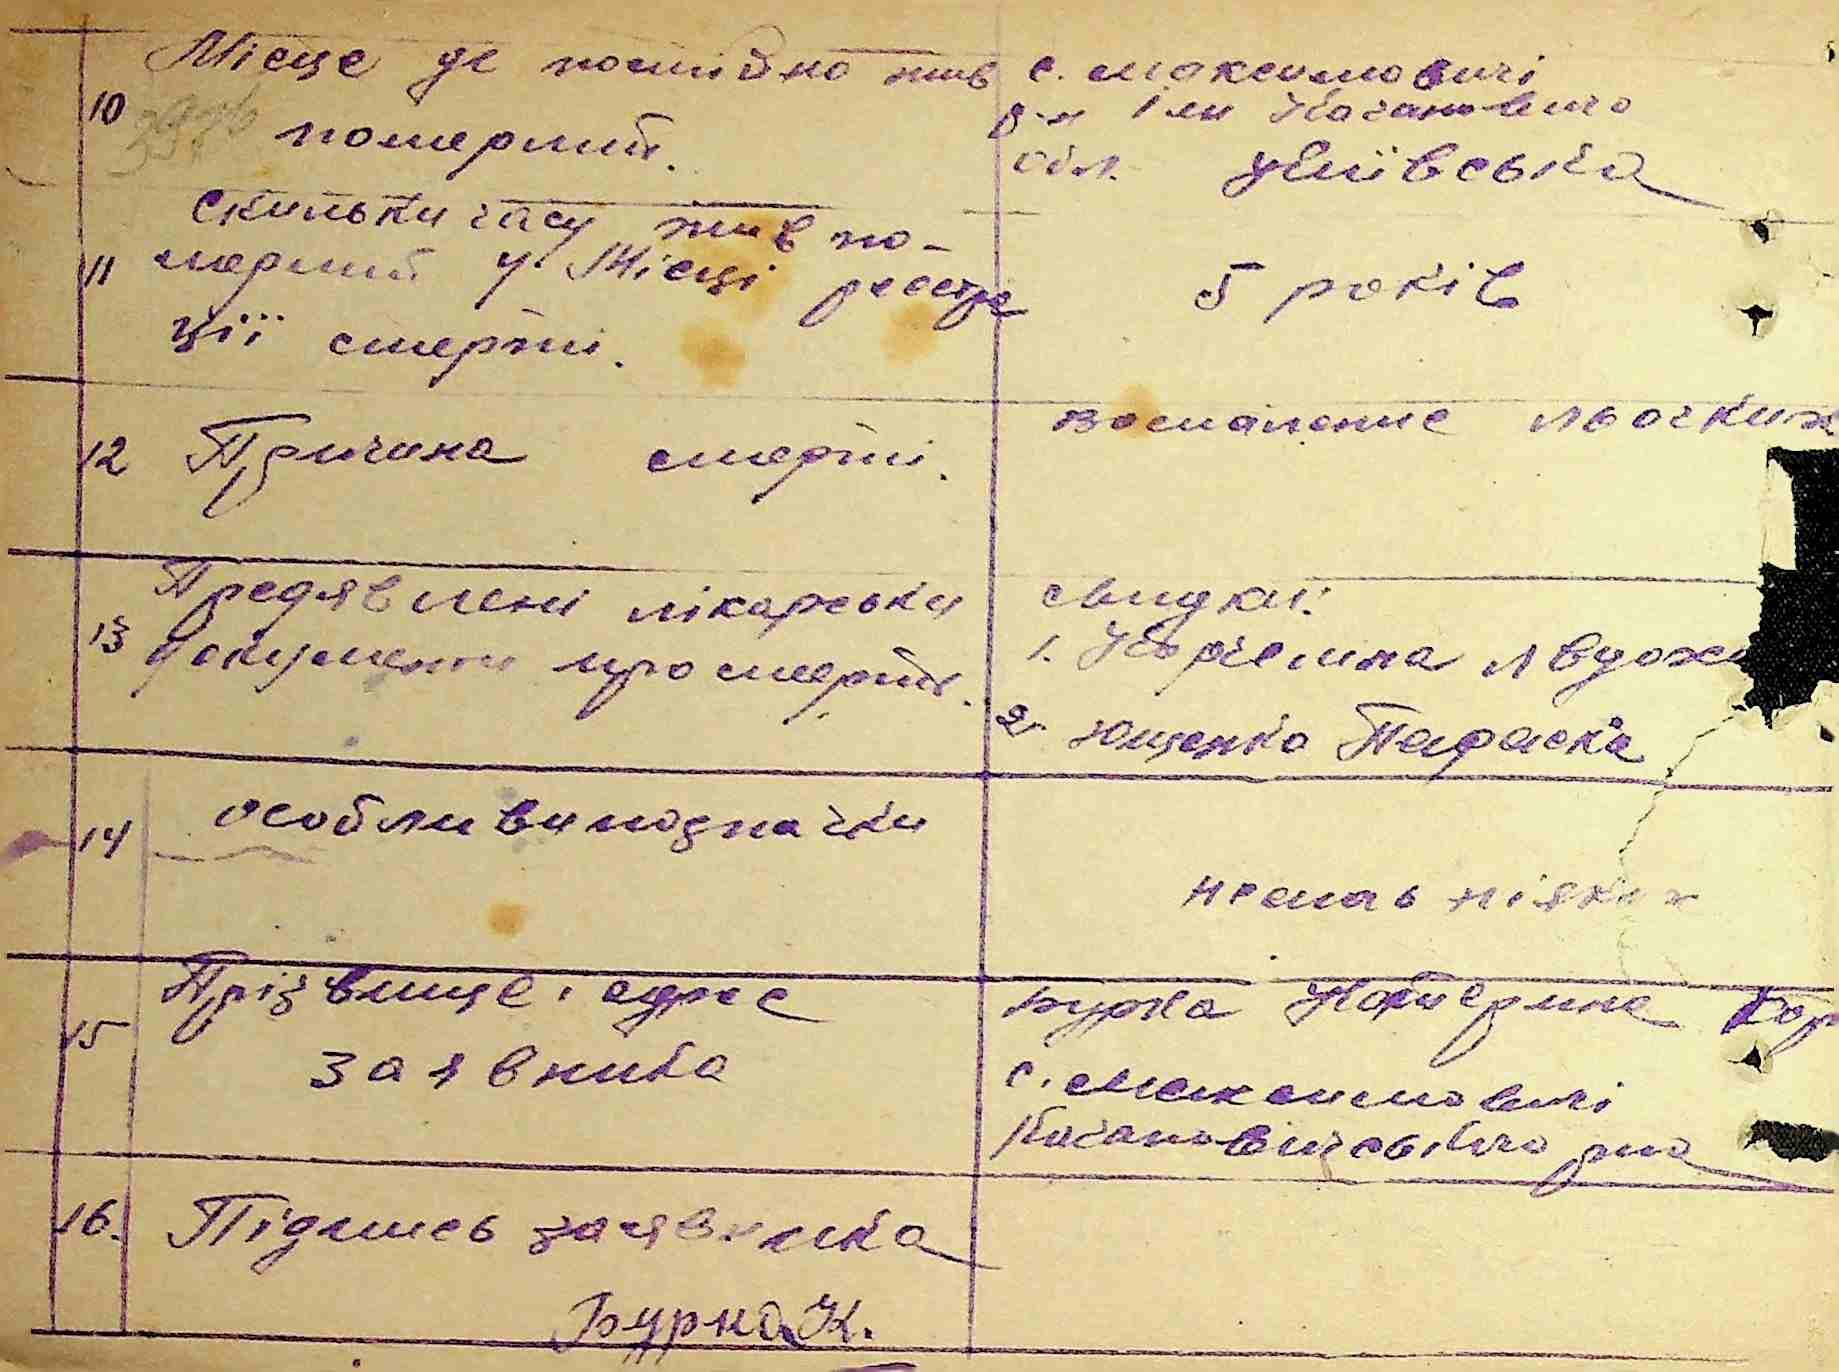 10 Місце де постійно жив
померший.
с. Максимовичі
р-н Ім Кагановича
обл. Київська
11 Скильки часу жив по-
мерший у Місці реестра
ції смерті.
5 років
12 Причина смерті.
воспаление льогких
13 Предявлені лікарськи
документи про смерть.
свидки:
1. Явдоха
2. Ющенко Параска
14 Особливи позначки
немає ніяких
15 Прізвище і адрес
заявника
Бурка Катерина
с. Максимовичі
Кагановичського р-на
16. Підпись заявника
Бурка К.